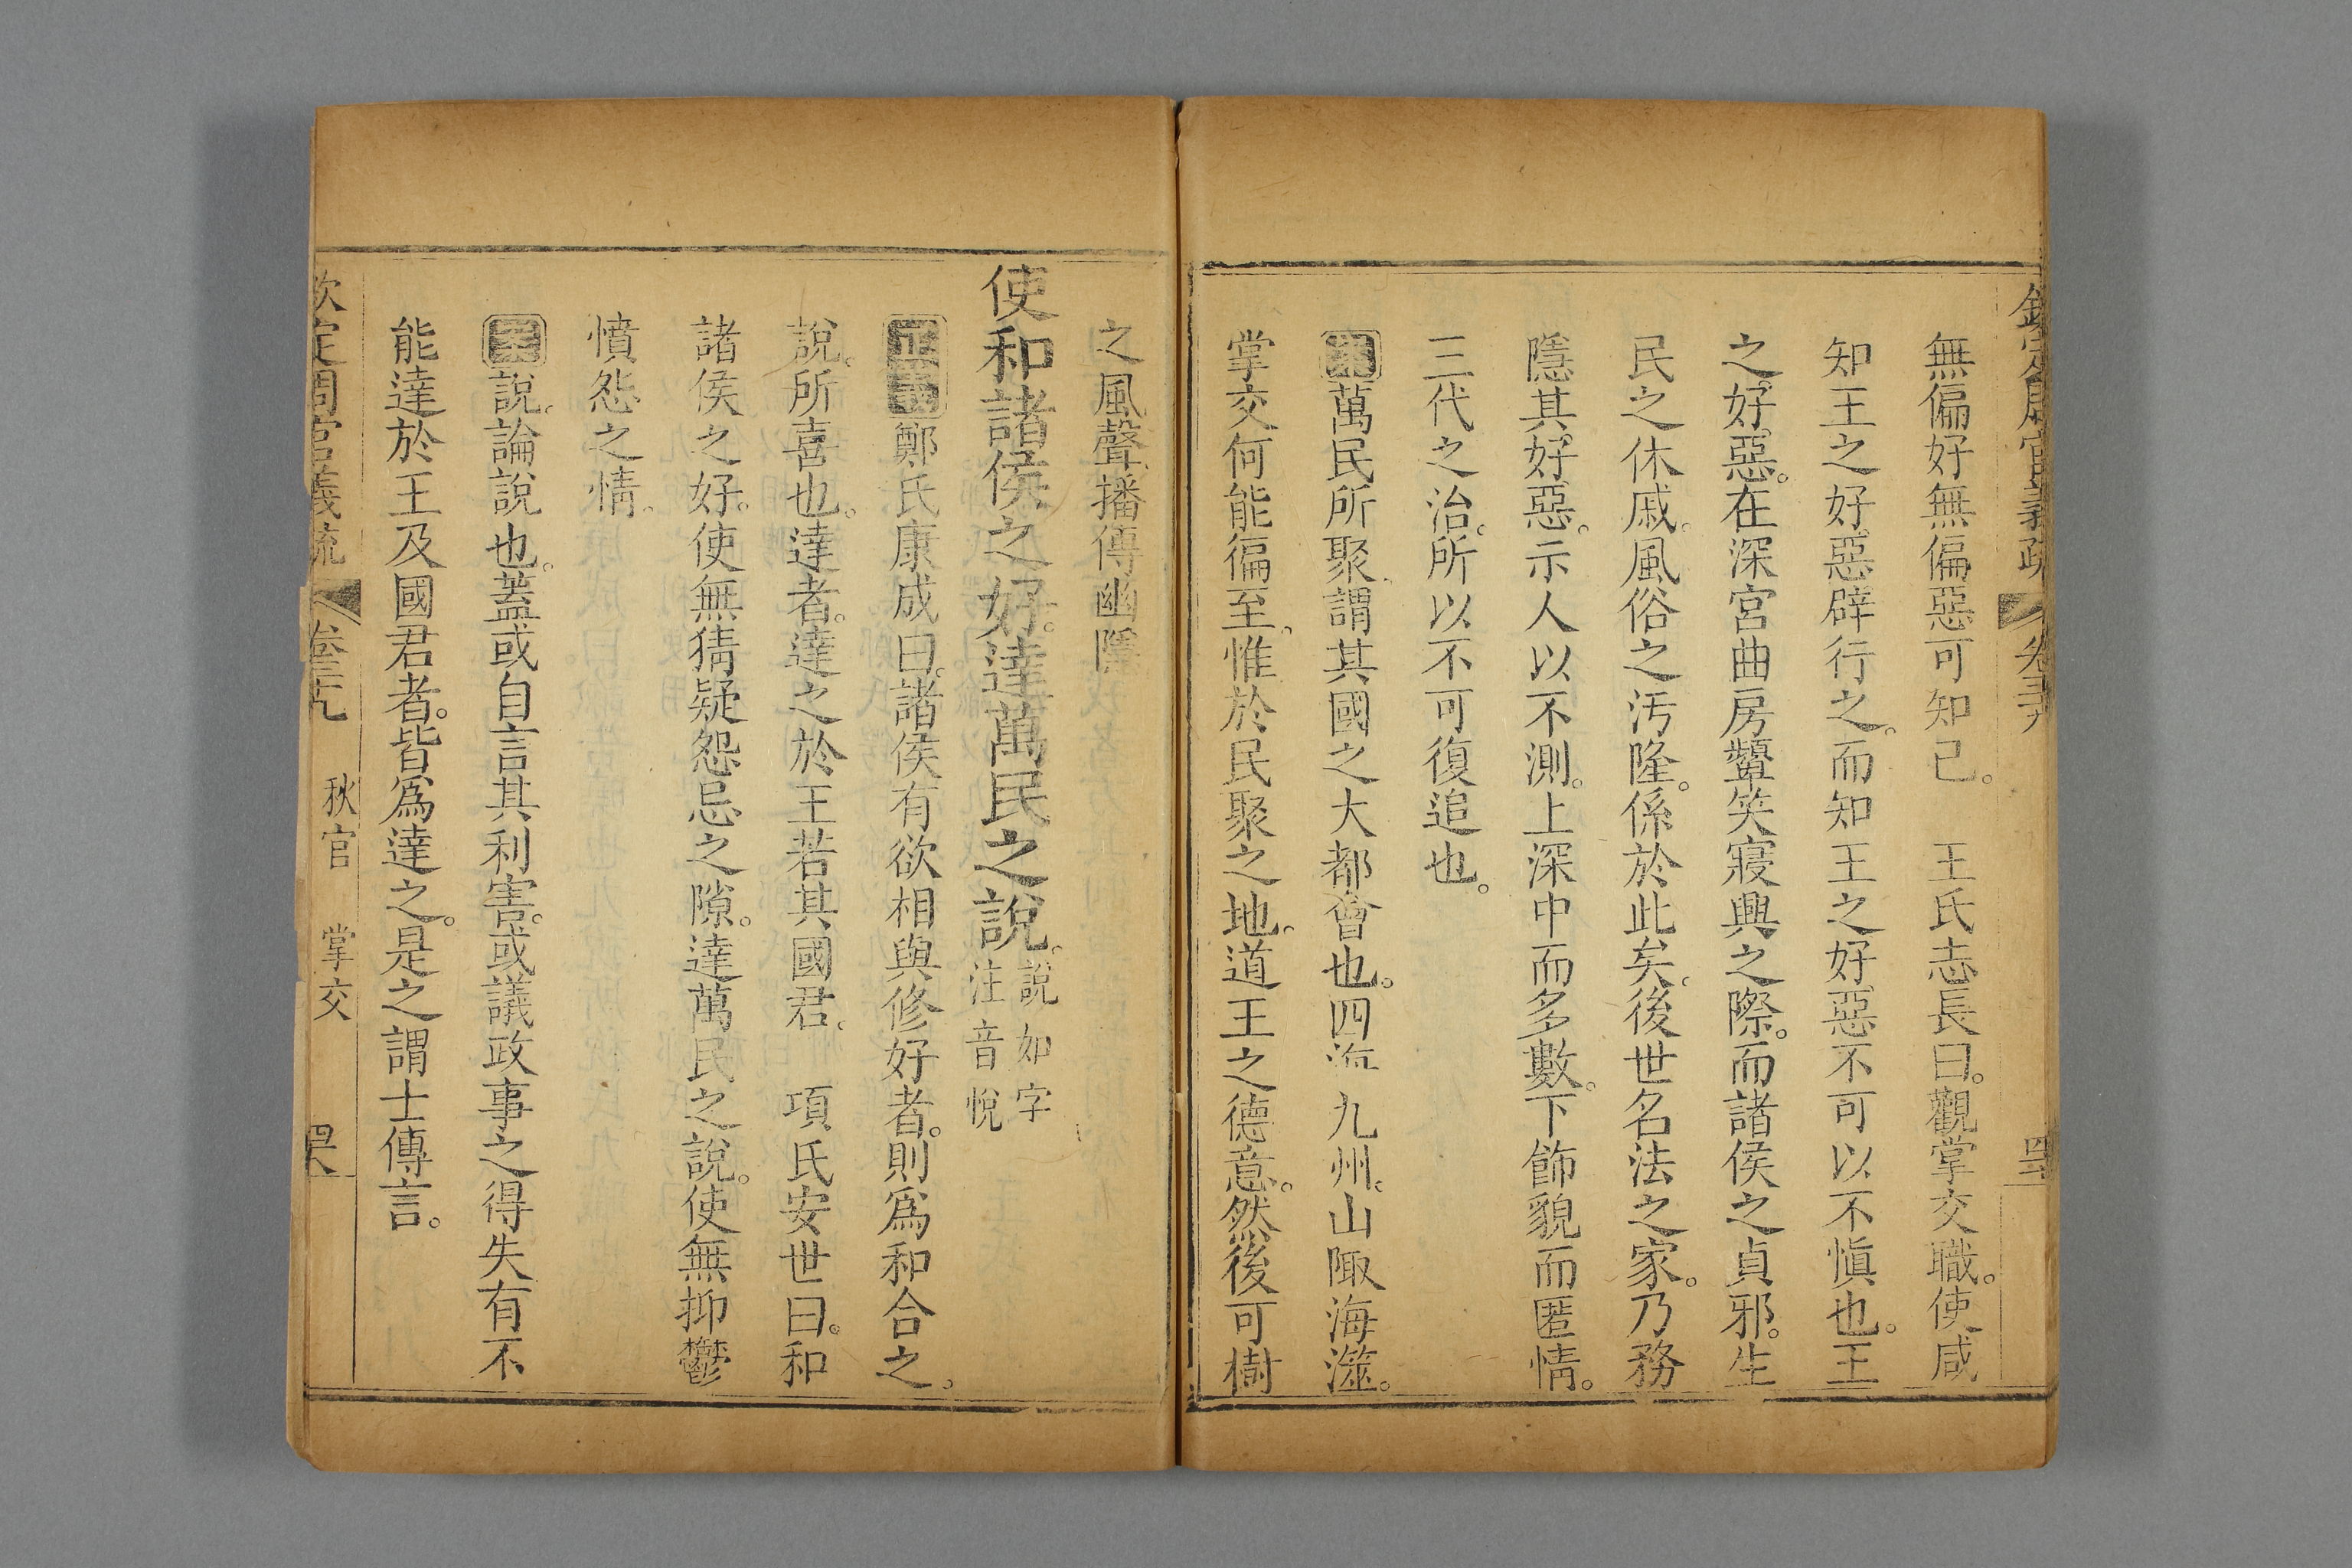 欽定周官義疏 卷三十九
無偏好無偏惡可知已。 王氏志長曰。觀掌交職。使咸
知王之好惡辟行之。而知王之好惡不可以不愼也。王
之好惡。在深宮曲房顰笑寢興之際。而諸侯之貞邪。生
民之休戚。風俗之汚隆。係於此矣。後世名法之家。乃務
隱其好惡。示人以不測。上深中而多數。下飾貌而匿情。
三代之治。所以不可復追也。
案萬民所聚。謂其國之大都會也。四海九州。山陬海澨。
掌交何能徧至。惟於民聚之地。道王之德意。然後可樹
之風聲。播傳幽隱
使和諸侯之好。達萬民之說。說如字
注音悅
正義鄭氏康成曰。諸侯有欲相與修好者。則爲和合之。
說。所喜也。達者。達之於王若其國君。 項氏安世曰。和
諸侯之好。使無猜疑怨忌之隙。達萬民之說。使無抑鬱
憤怨之情。
案說。論說也。蓋或自言其利害。或議政事之得失有不
能達於王及國君者。皆爲達之。是之謂士傳言。
欽定周官義疏 卷三十九 秋官 掌交